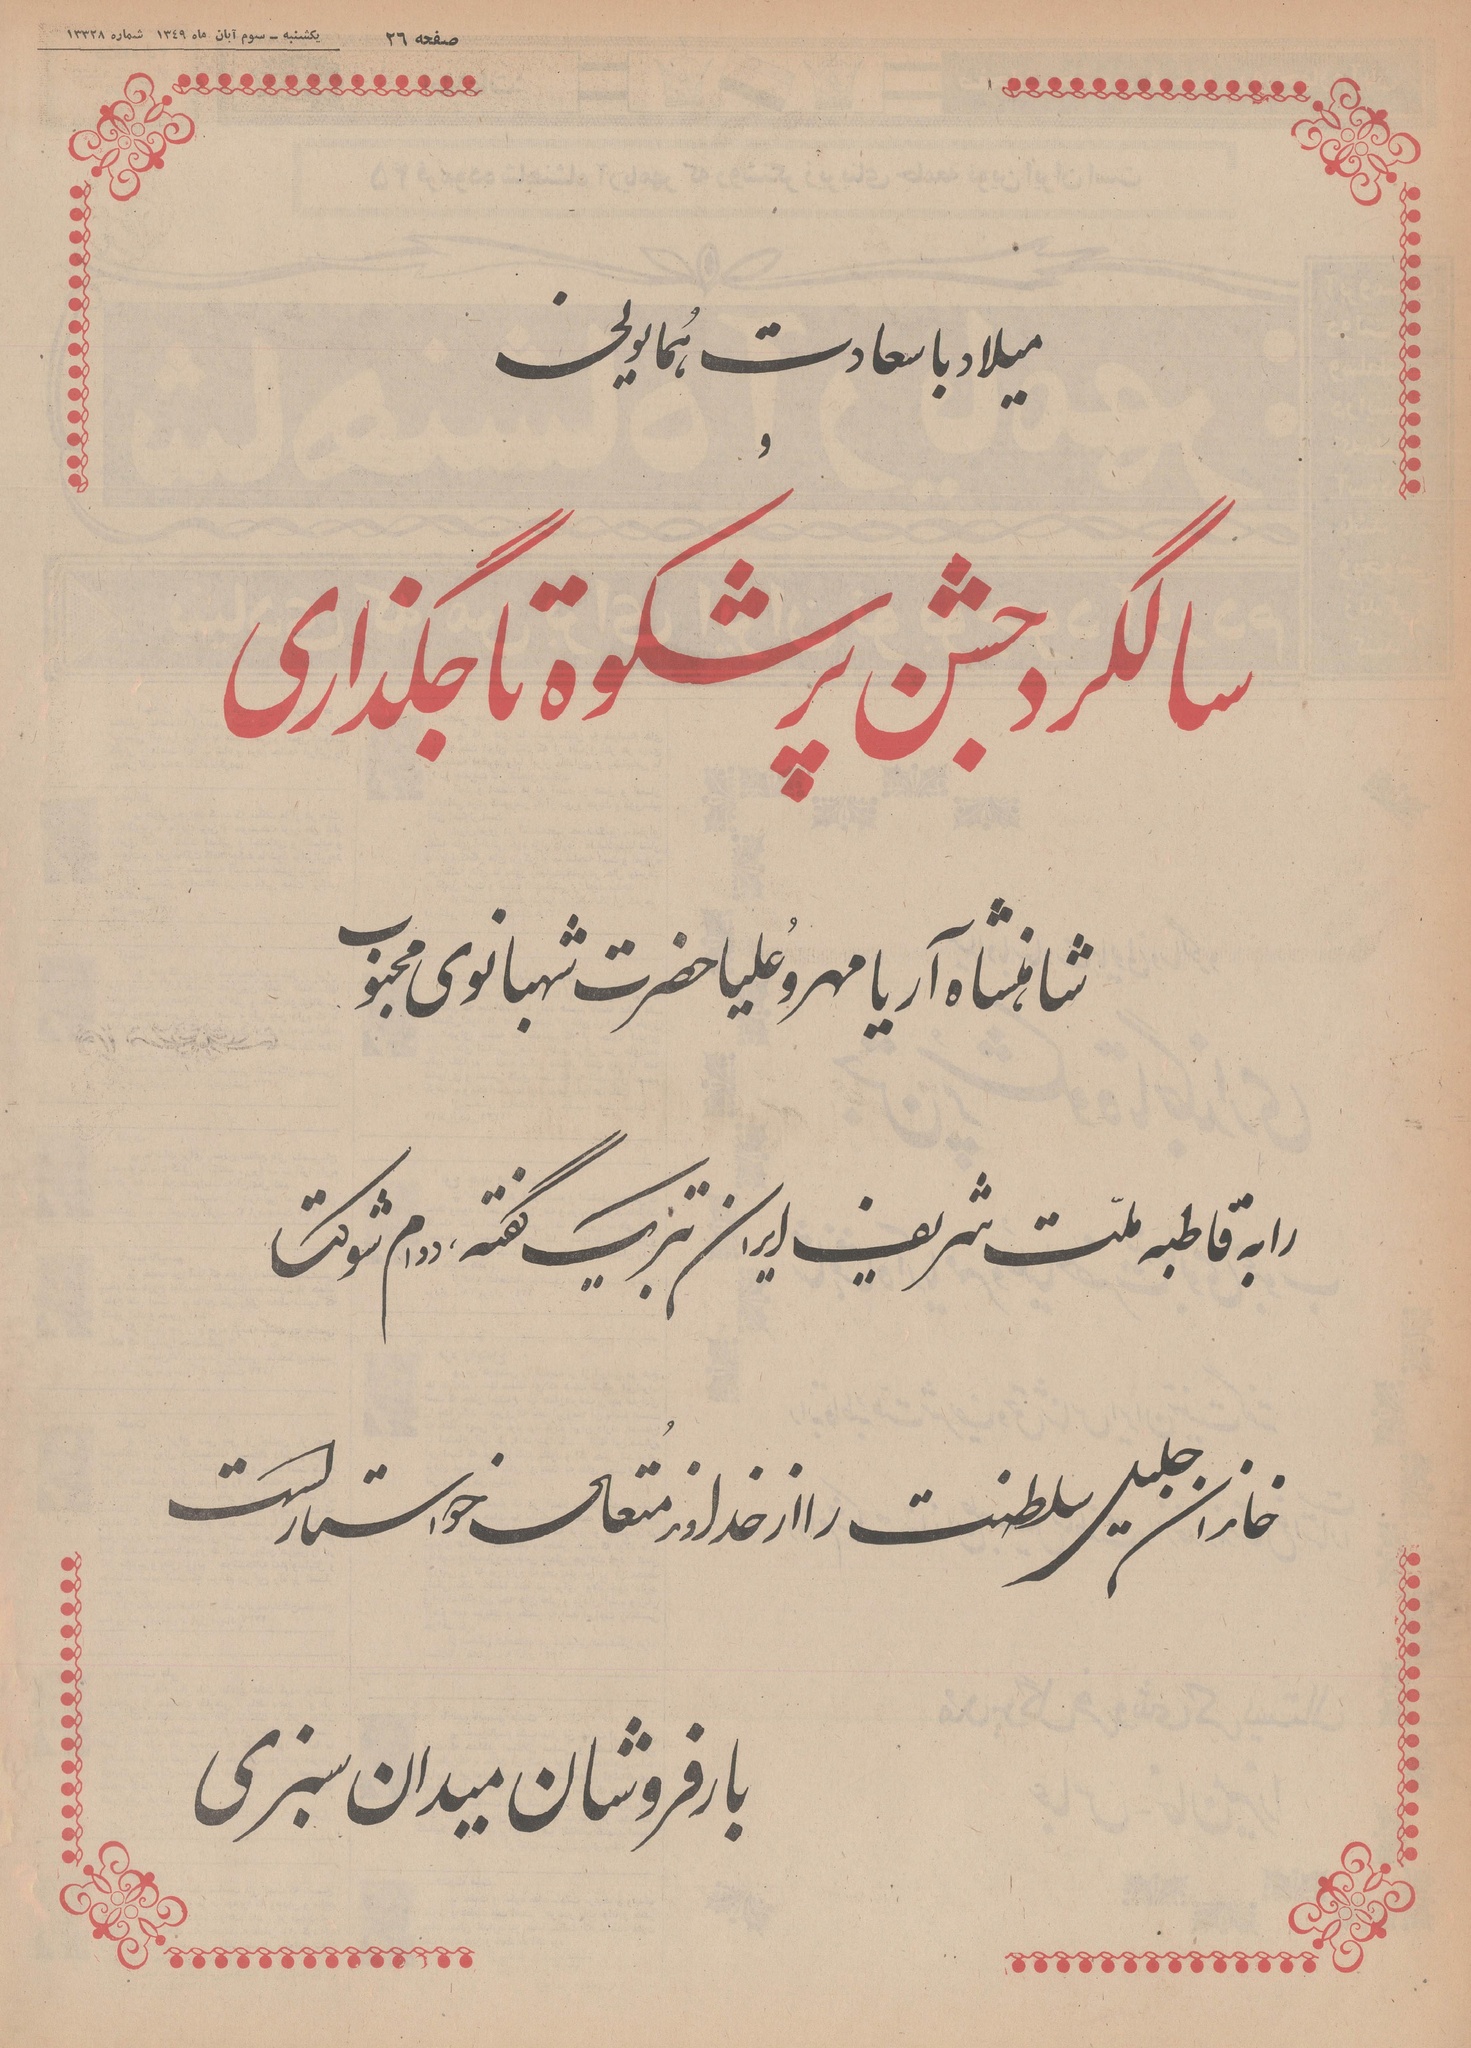 صفحه ۲۶
یکشنبه - سوم آبان ماه ۱۳۴۹ شماره ۱۳۳۲۸
میلاد با سعادت همایونی
و
سالگرد جشن پرشکوه تاجگذاری
شاهنشاه آریامهر و علیاحضرت شهبانوی محبوب
را به قاطبه ملت شریف ایران تبریک گفته، دوام شوکت
خاندان جلیل سلطنت را از خداوند متعال خواستار است
بارفروشان میدان سبزی